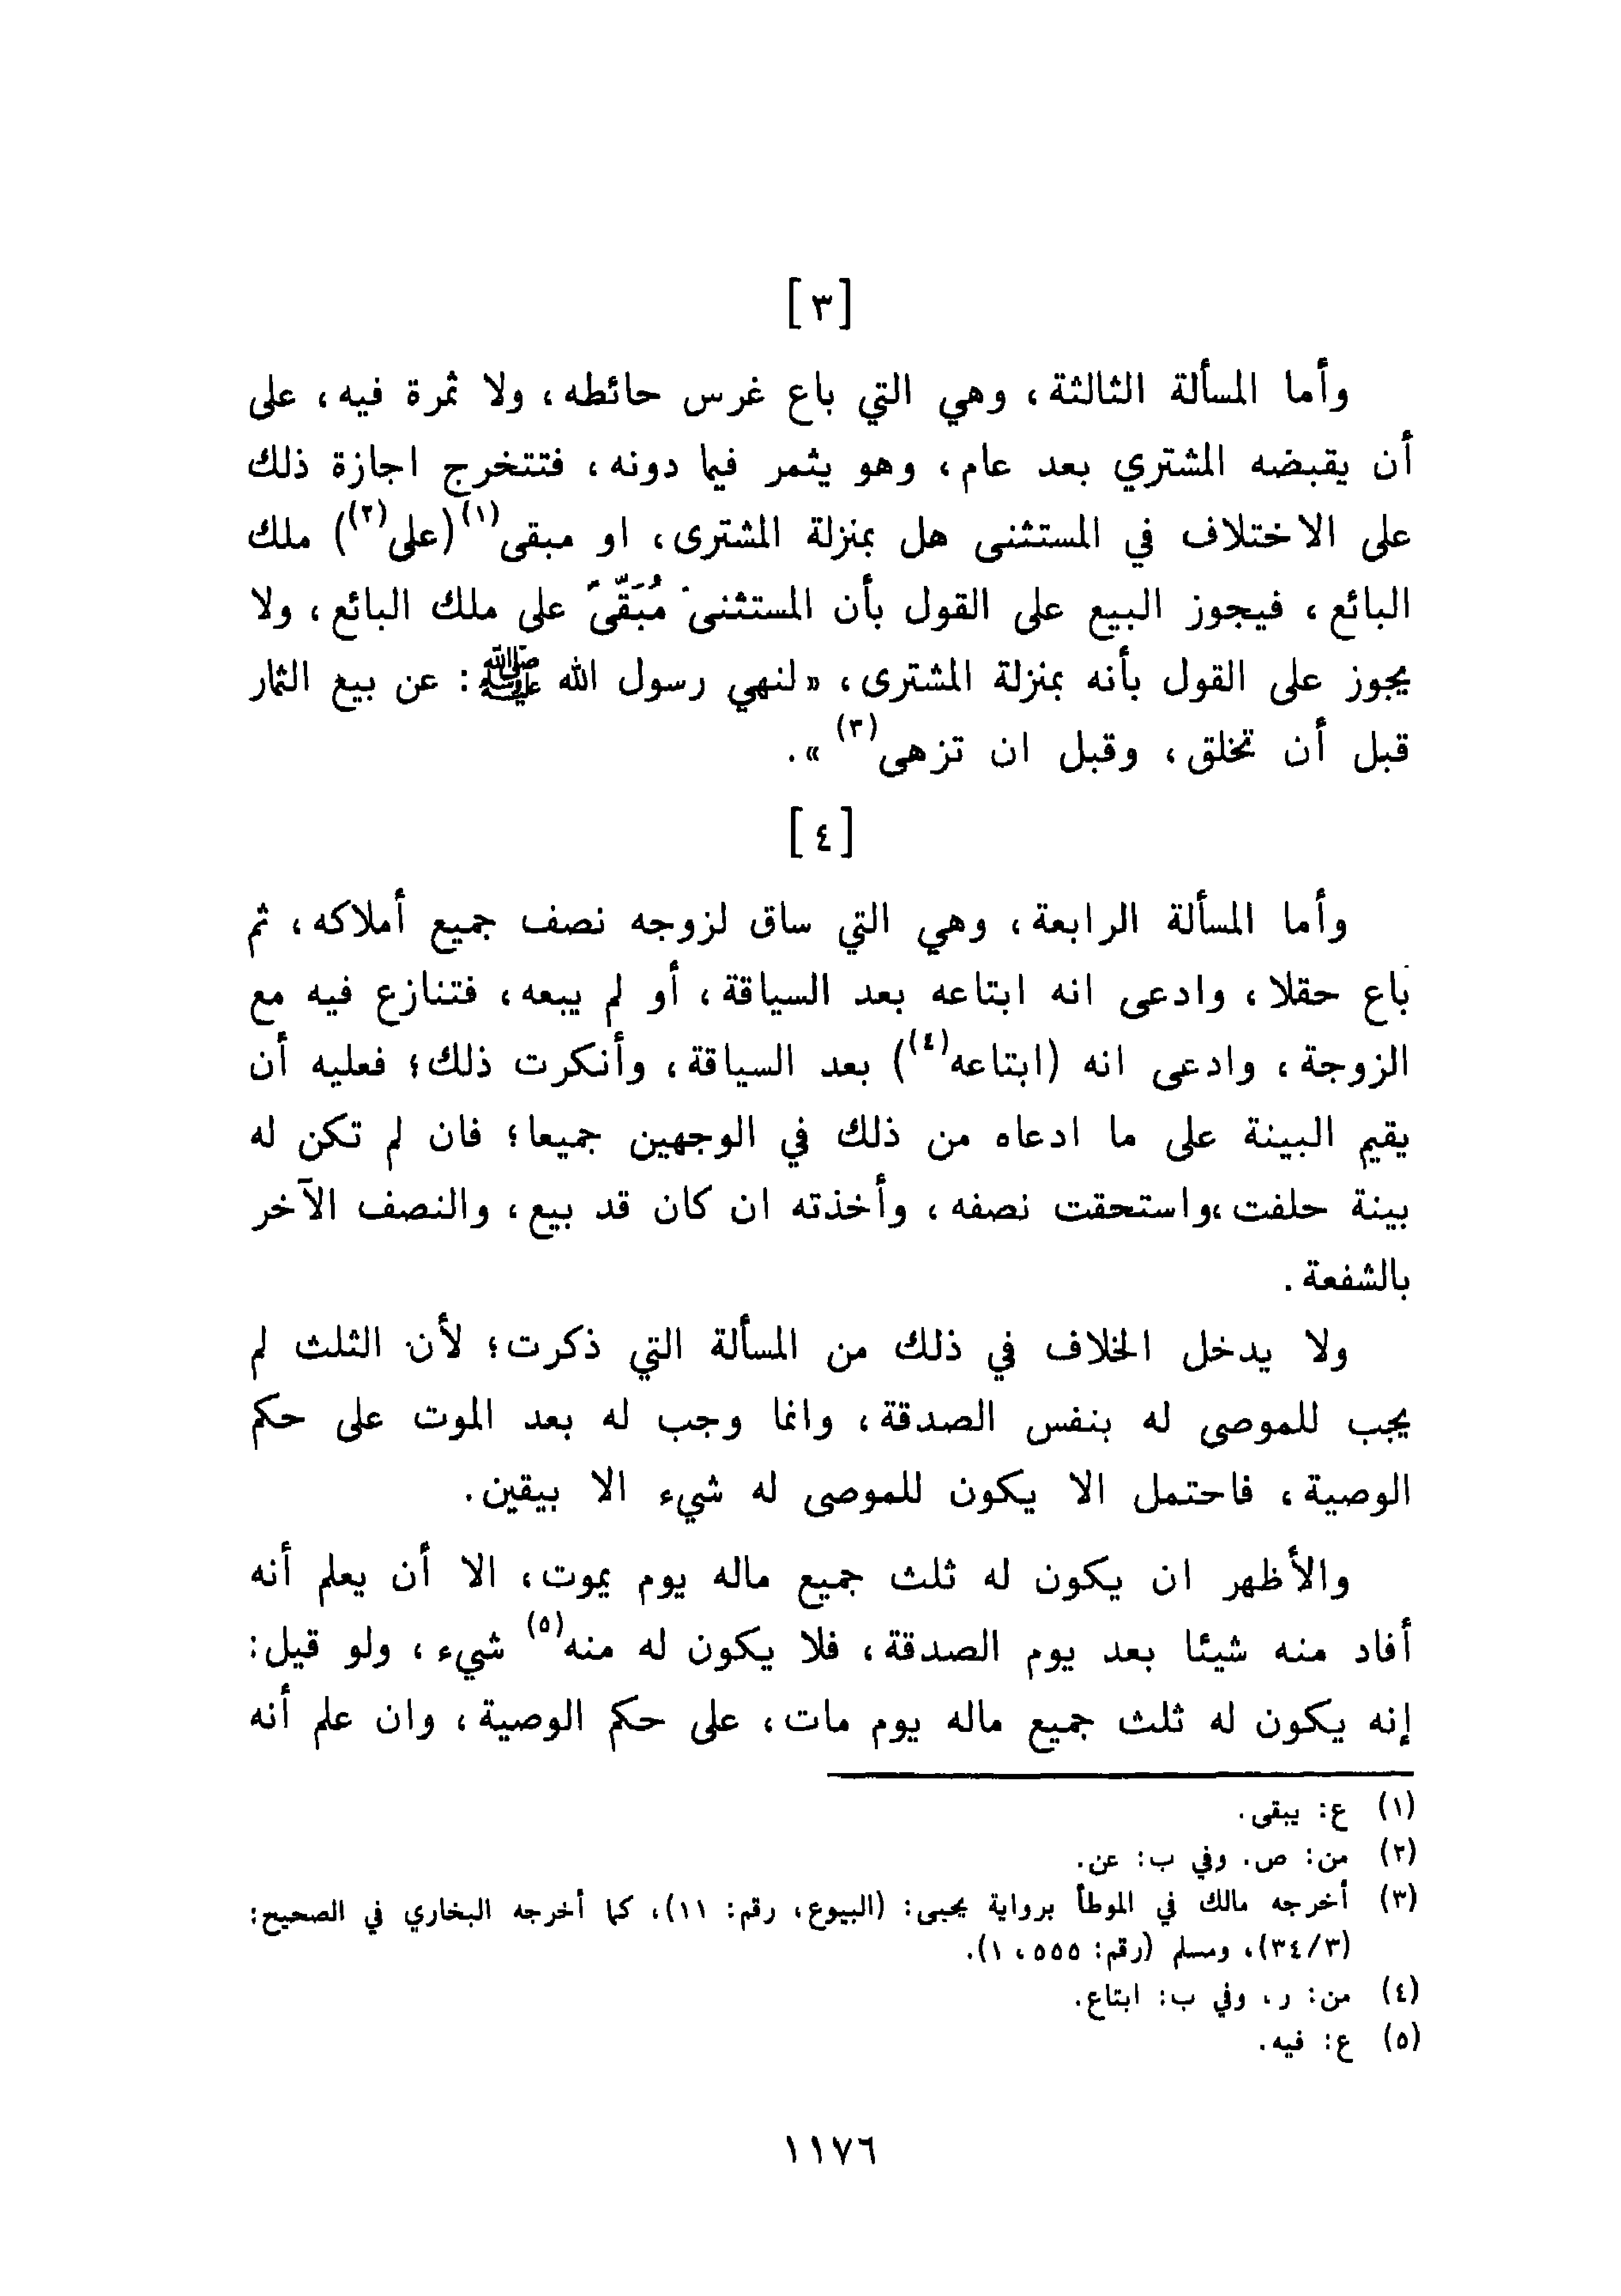 [٣]
وأما المسألة الثالثة، وهي التي باع غرس حائطه، ولا ثمرة فيه، على
أن يقبضه المشتري بعد عام، وهو يثمر فيما دونه، فتتخرج اجازة ذلك
على الاختلاف في المستثنى هل بمنزلة المشترى، او مبقى(١)(على(٢)) ملك
البائع، فيجوز البيع على القول بأن المستثنى مُبَقّىً على ملك البائع، ولا
يجوز على القول بأنه بمنزلة المشترى، «لنهي رسول الله ﷺ: عن بيع الثمار
قبل أن تخلق، وقبل ان تزهى(٣)».
[٤]
وأما المسألة الرابعة، وهي التي ساق لزوجه نصف جميع أملاكه، ثم
باع حقلا، وادعى انه ابتاعه بعد السياقة، أو لم يبعه، فتنازع فيه مع
الزوجة، وادعى انه (ابتاعه(٤)) بعد السياقة، وأنكرت ذلك؛ فعليه أن
يقيم البينة على ما ادعاه من ذلك في الوجهين جميعا؛ فان لم تكن له
بينة حلفت،واستحقت نصفه، وأخذته ان كان قد بيع، والنصف الآخر
بالشفعة.
ولا يدخل الخلاف في ذلك من المسألة التي ذكرت؛ لأن الثلث لم
يجب للموصى له بنفس الصدقة، وانما وجب له بعد الموت على حكم
الوصية، فاحتمل الا يكون للموصى له شيء الا بيقين.
والأظهر ان يكون له ثلث جميع ماله يوم يموت، الا أن يعلم أنه
أفاد منه شيئا بعد يوم الصدقة، فلا يكون له منه(٥) شيء، ولو قيل:
إنه يكون له ثلث جميع ماله يوم مات، على حكم الوصية، وان علم أنه
(١) ع: يبقى.
(٢) من: ص. وفي ب: عن.
(٣) أخرجه مالك في الموطأ برواية يحيى: (البيوع، رقم: ١١)، كما أخرجه البخاري في الصحيح:
(٣٤/٣)، ومسلم (رقم: ٥٥٥، ١).
(٤) من: ر، وفي ب: ابتاع.
(٥) ع: فيه.
١١٧٦